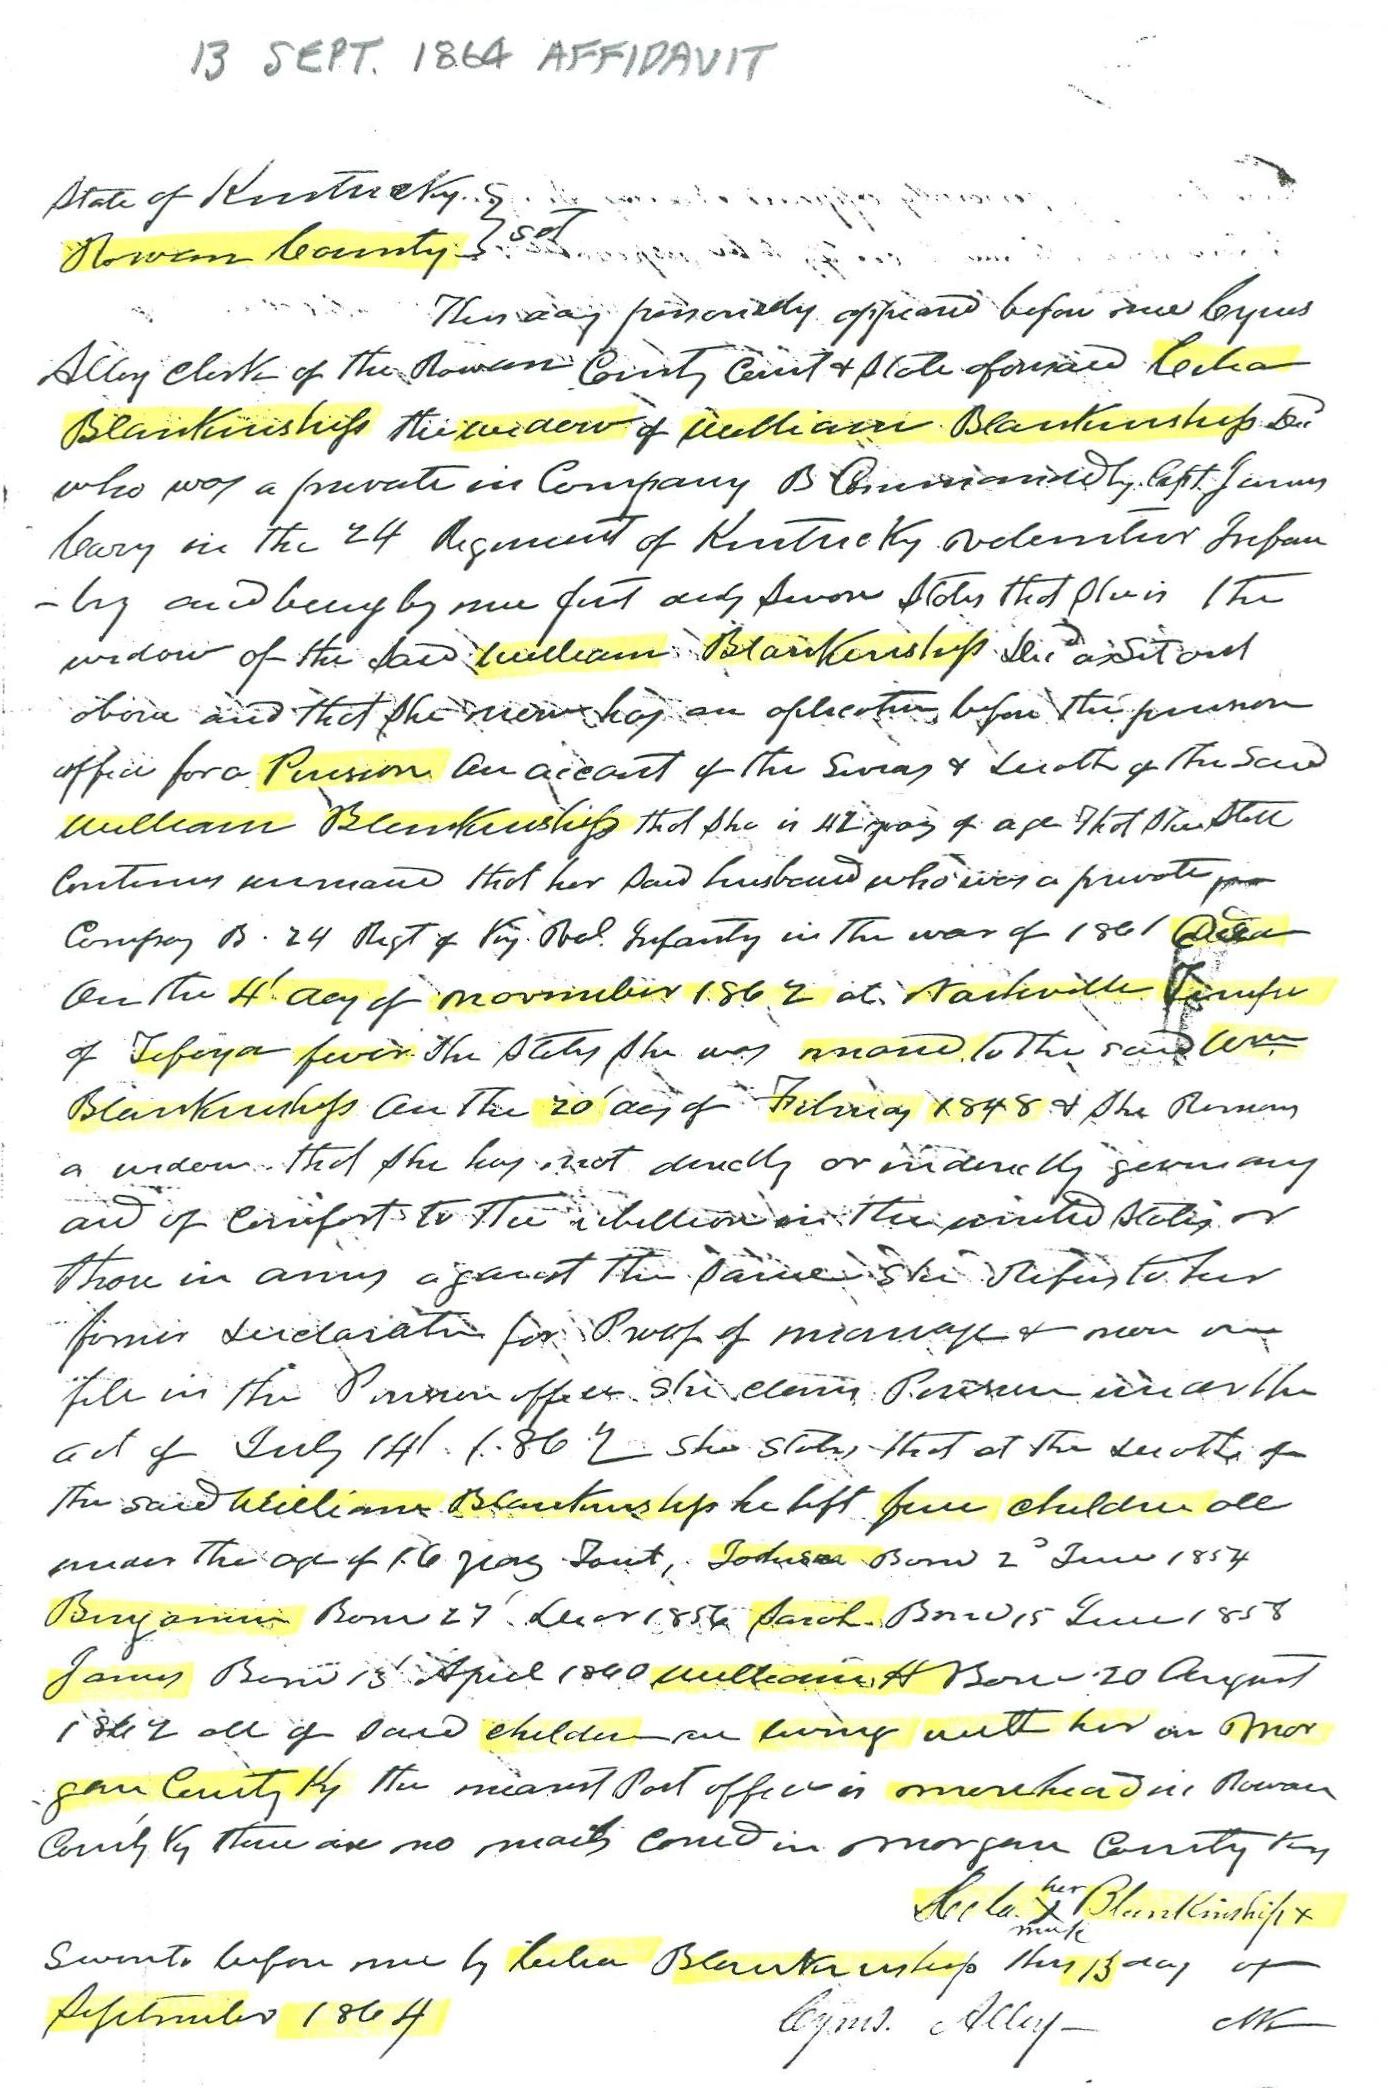 13 SEPT. 1864 AFFIDAVIT
State of Kentucky
Rowan County } sct
This day personally appeared before me Cyrus
Alley clerk of the Rowan County Court & State aforesaid Celia
Blankinship the widow of William Blankinship Decd
who was a private in Company B Commanded by Capt James
Cary in the 24 Regiment of Kentucky volenteer Infan
-try and being by me first duly sworn States that She is the
widow of the said William Blankinship Decd as Set out
above and that She now has an aplication before the pension
office for a Pension on account of the Servis & Death of the Said
William Blankinship that She is 42 years of age that She Still
Continues unmaried that her Said husband who was a private
Company B. 24 Regt of Ky. Vol. Infanty in the war of 1861 Died
on the 4' day of November 1862 at Nashville Tennessee
of fever She States She was maried to the said Wm
Blankinship on the 20' day of 1848 & She Remains
a widow that She has not directly or indirectly given any
aid or Comfort to the rebellion in the united States or
those in arms against the Same She Refers to her
former declaration for Proof of marriage & now on
file in the Pension office She claims Pension under the
act of July 14' 1862 She States that at the Death of
the said William Blankinship he left five children all
under the age of 16 years Born 2d June 1854
Benjamin Born 27' 1856 Sarah Born 15 June 1858
James Born April 1860 William H Born 20 August
1862 all of Said children are living with her in Mor
gan County Ky the nearest Post office is Morehead in Rowan
County Ky there are no mails in Morgan County Ky
her
Blankinship x
mark
Sworn to before me by Celia Blankinship this 13 day of
September 1864
Cyrus. Alley